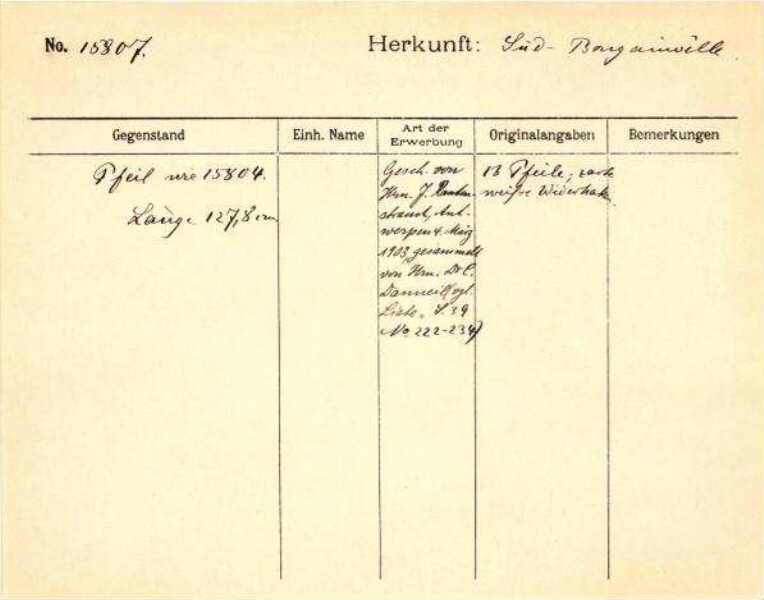 No. 15807. Herkunft: Süd- Bougainville.
Gegenstand Einh. Name Art der Erwerbung Originalangaben Bemerkungen
Pfeil wie 15804.
Länge 127,8 cm
Gesch. von
Hrn. J. Rauten-
strauch, Ant-
werpen 4. März
1903, gesammelt
von Hrn. Dr. C.
Danneil (vgl.
Liste, S. 39
No 222-234)
13 Pfeile, zarte
weiße Widerhaken